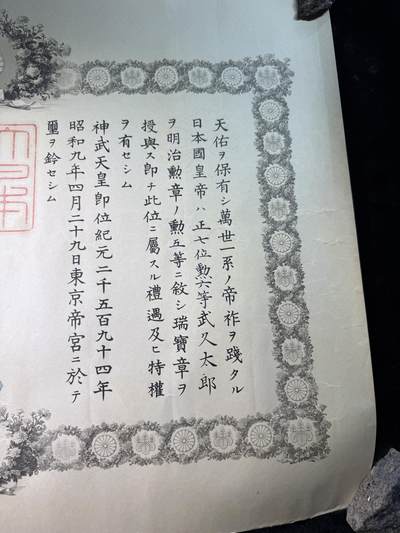 天佑ヲ保有シ萬世一系ノ帝祚ヲ踐タル
日本國皇帝ハ正七位勲六等武久太郎
ヲ明治勲章ノ勲五等ニ敍シ瑞寶章ヲ
授與ス即チ此位ニ屬スル禮遇及ヒ特權
ヲ有セシム
神武天皇即位紀元二千五百九十四年
昭和九年四月二十九日東京帝宮ニ於テ
璽ヲ鈐セシム